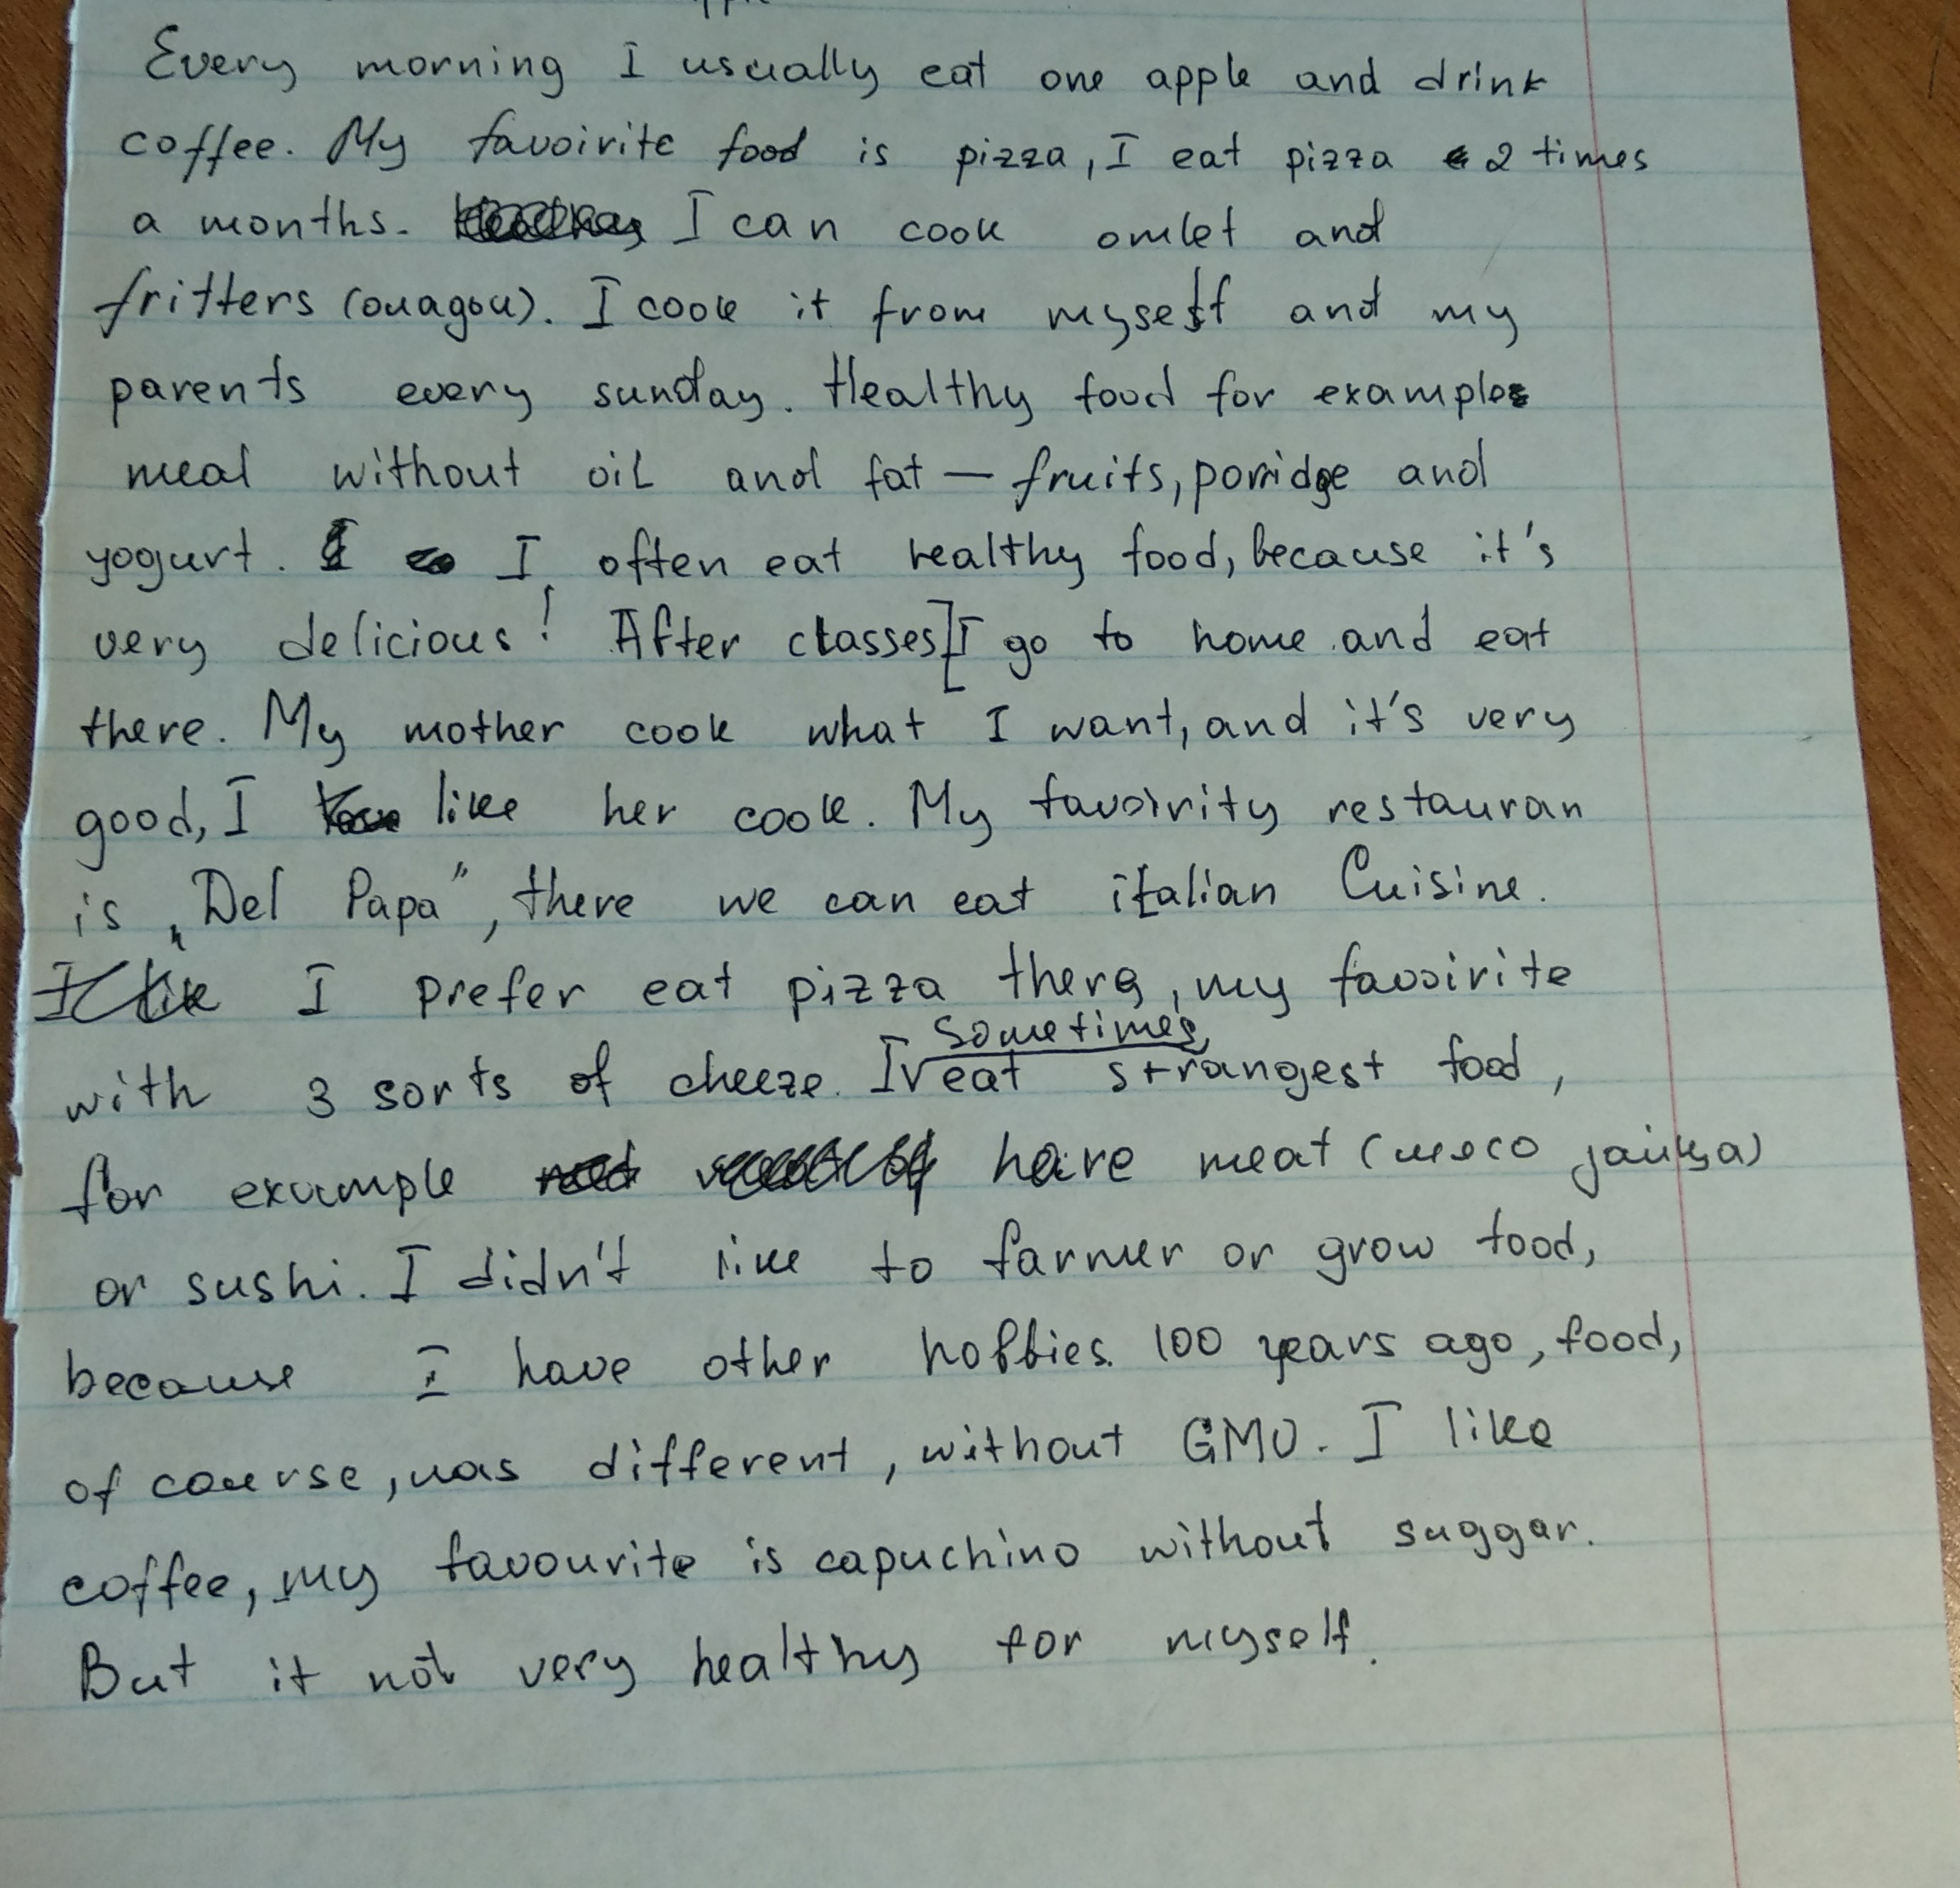 Every morning I usually eat one apple and drink
coffee. My favoirite food is pizza, I eat pizza 2 times
a months. I can cook omlet and
fritters (оладьи). I cook it from myself and my
parents every sunday. Healthy food for example
meal without oil and fat — fruits, porridge and
yogurt. I often eat healthy food, because it's
very delicious! After classes I go to home and eat
there. My mother cook what I want, and it's very
good, I like her cook. My favoirity restauran
is „Del Papa", there we can eat italian Cuisine.
I prefer eat pizza there, my favoirite
with 3 sorts of cheeze. I sometimes eat strangest food,
for example hare meat (мясо зайца)
or sushi. I didn't like to farmer or grow food,
because I have other hobbies. 100 years ago, food,
of course, was different, without GMO. I like
coffee, my favourite is capuchino without suggar.
But it not very healthy for myself.